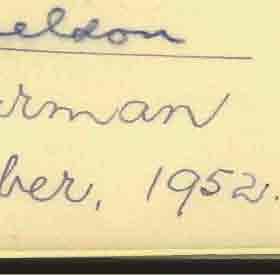 eldon
erman
ber, 1952.